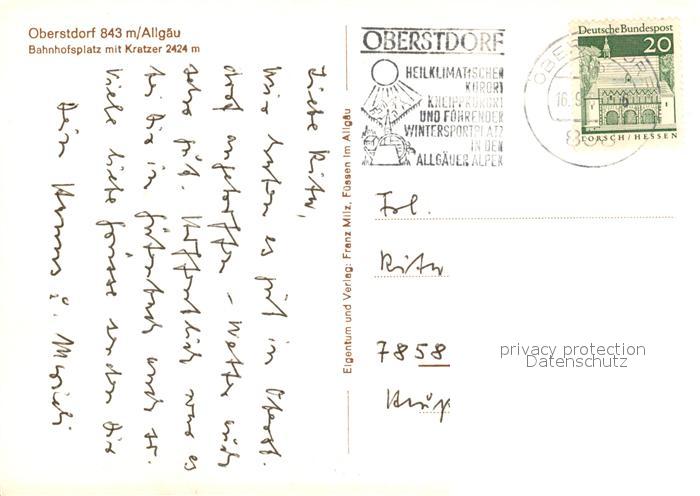 Oberstdorf 843 m/Allgäu
Bahnhofsplatz mit Kratzer 2424 m
Liebe Rita,
Wir haben es gut in Oberst-
dorf angetroffen - Wetter auch
sehr gut. Hoffentlich war es
bei Dir in auch so.
Viele liebe Grüsse senden Dir
Dein Hannes &
Eigentum und Verlag: Franz Milz, Füssen im Allgäu
OBERSTDORF
HEILKLIMATISCHER
KURORT
KNEIPPKURORT
UND FÜHRENDER
WINTERSPORTPLATZ
IN DEN
ALLGÄUER ALPEN
16.9.
Deutsche Bundespost
20
LORSCH/HESSEN
Frl.
Rita
7858
privacy protection
Datenschutz